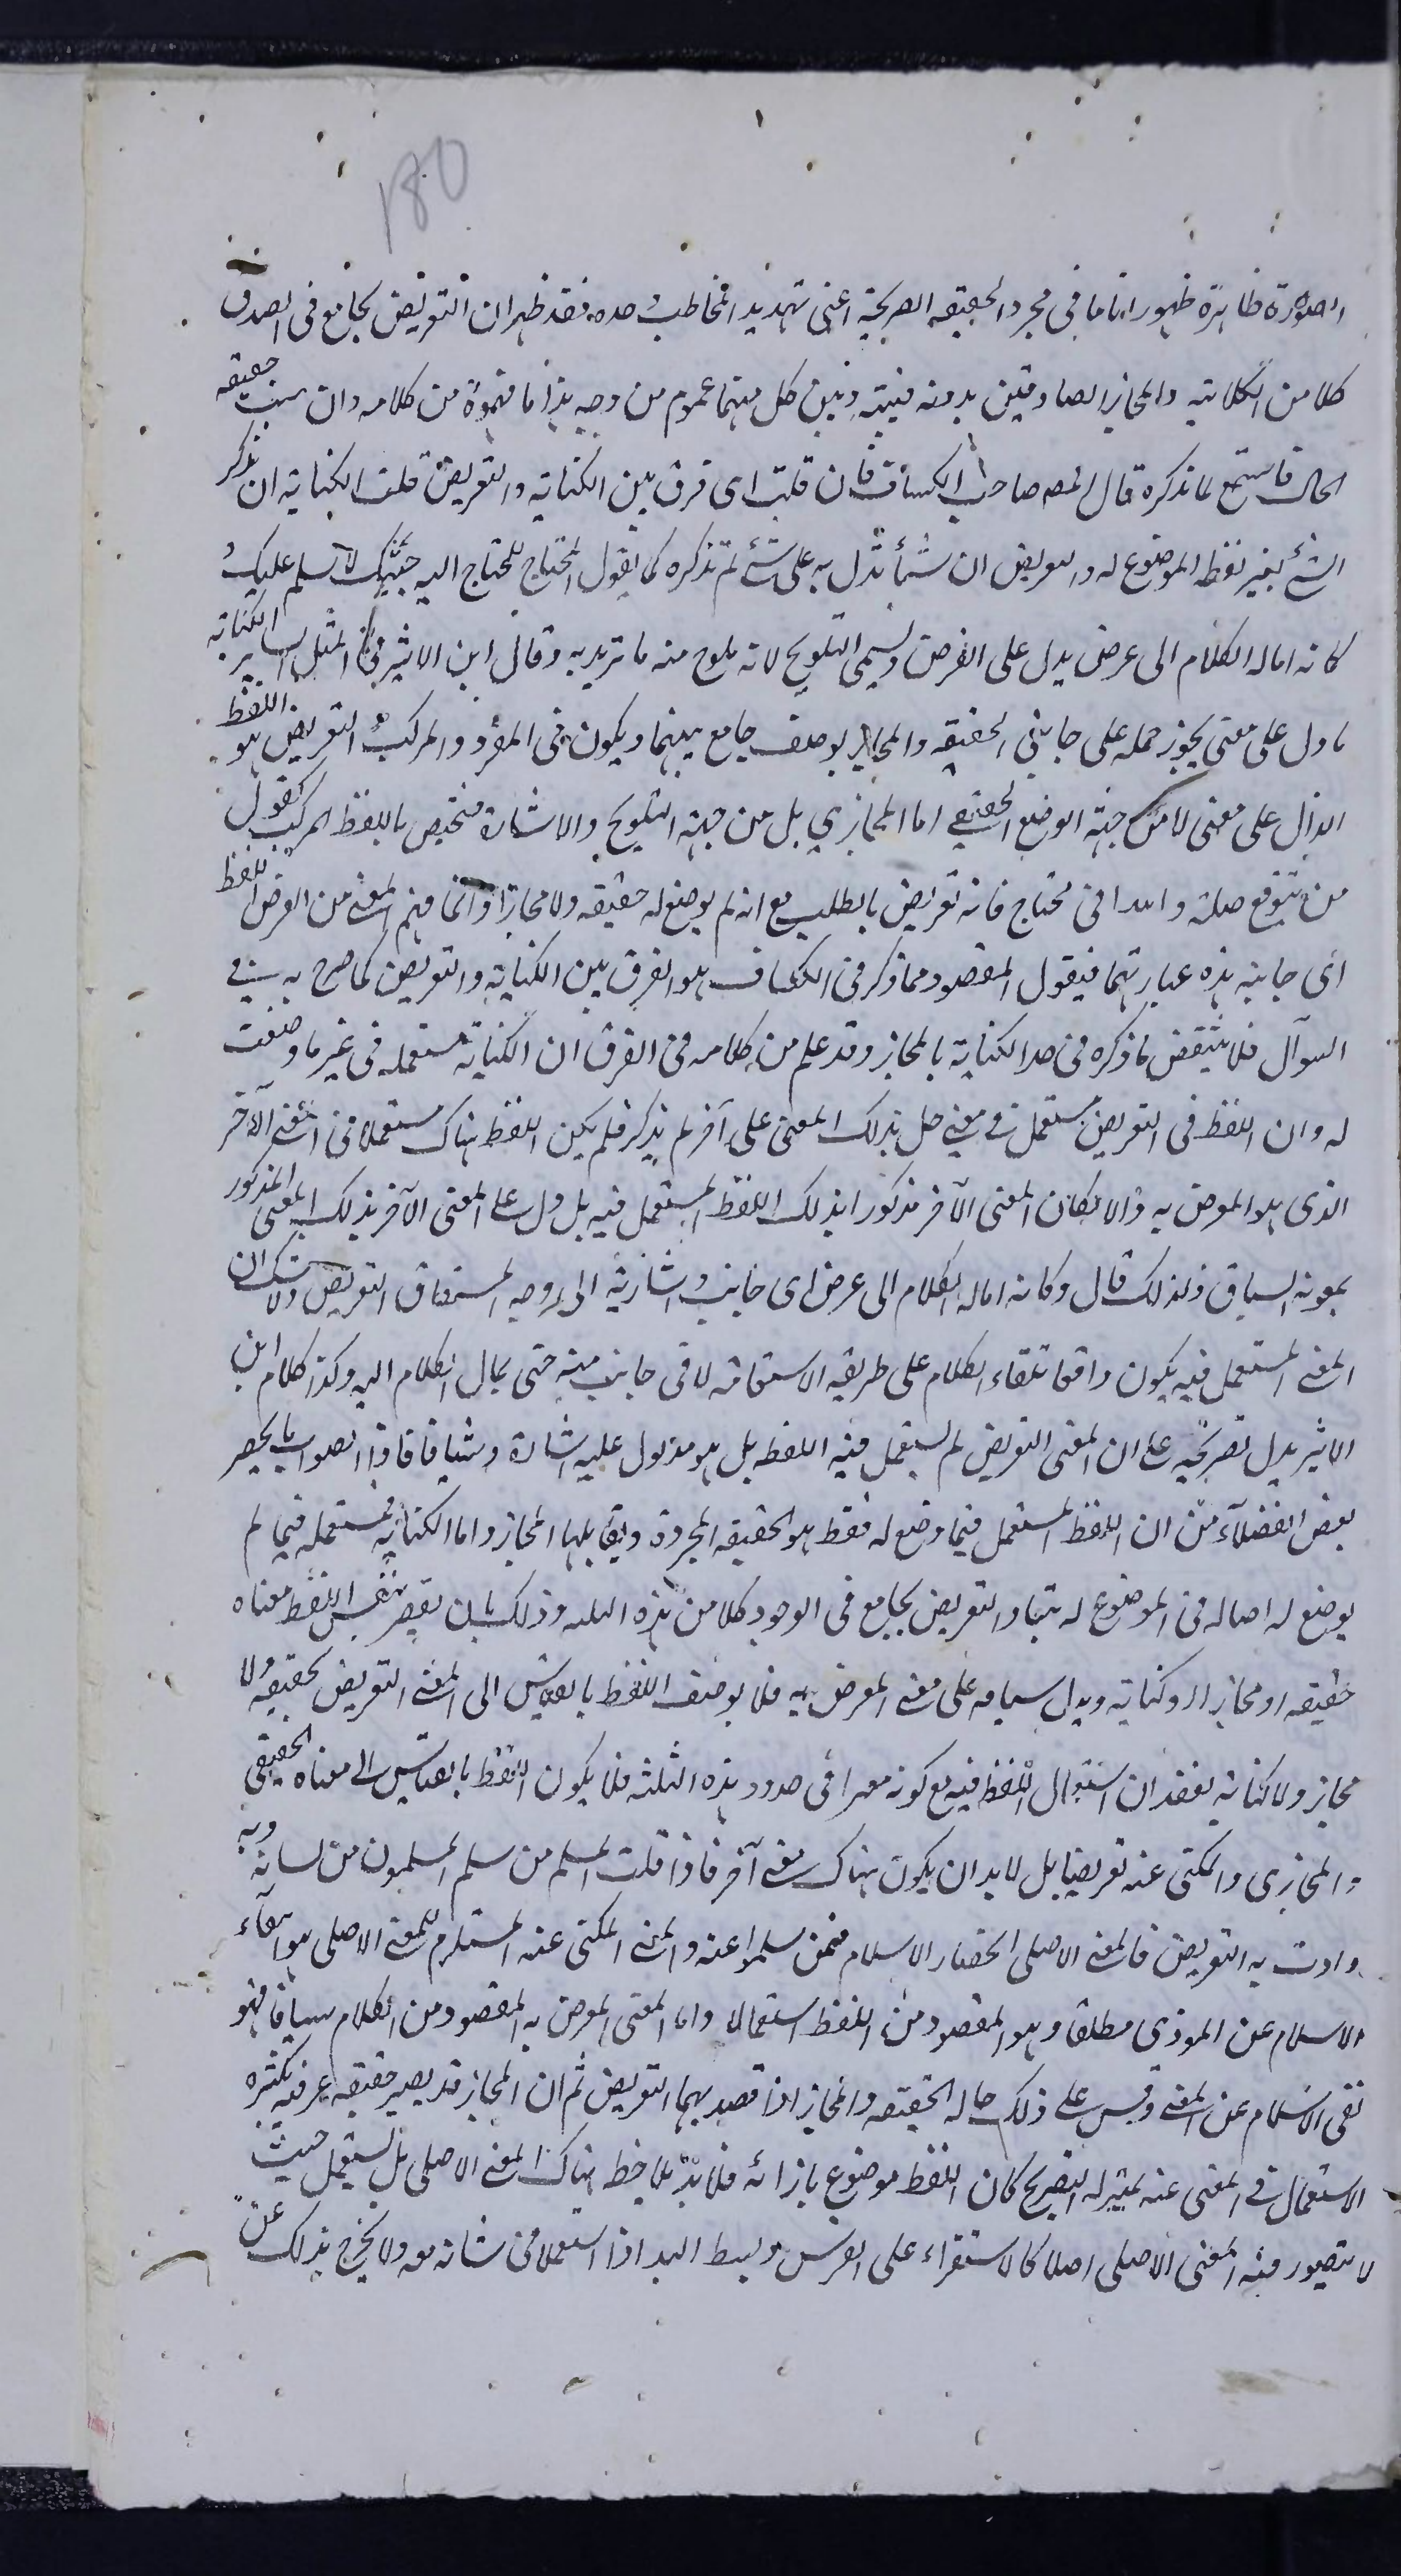 180
الصورة ظاهرة ظهورا تاما في مجرد الحقيقه الصريحية اعنى تهديد المخاطب وحده فقد ظهر ان التعريض يجامع فى الصدق
كلا من الكلاتيه والمجاز الصادقين بدونه فبينه وبين كل منهما عموم من وجه هذا ما فهموه من كلامه وان شئت حقيقه
الحال فاستمع لما نذكره قال المص صاحب الكشاف فان قلت اى فرق بين الكنايه والتعريض قلت الكنايه ان تذكر
الشئ بغير لفظ الموضوع له والتعريض ان شيأ تدل به على شئ لم تذكره كما يقول المحتاج للمحتاج اليه جئتك لاسلم عليك
كانه اماله الكلام الى عرض يدل على الغرض ويسمى التلويح لانه يلوح منه ما تريد به وقال ابن الاثير فى المثل السائر الكنايه
ما دل على معنى يجوز حمله على جانبى الحقيقه والمجاز بوصف جامع بينهما ويكون فى المفرد والمركب التعريض هو اللفظ
الدال على معنى لا من جهة الوضع الحقيقى اما المجازي بل من جهة التلويح والاشارة فتختص باللفظ المركب كقول
من يتوقع صلة والله انى محتاج فانه تعريض بالطلب مع انه لم يوضع له حقيقه ولا مجازا وانما فهم المعنى من العرض اللفظ
اى جانبه هذه عبارتهما فيقول المقصود مما ذكر فى الكشاف هو الفرق بين الكناية والتعريض كما صرح به فى
السوآل فلا ينتقض ما ذكره فى حد الكناية بالمجاز وقد علم من كلامه فى الفرق ان الكناية مستعمله فى غير ما وضعت
له وان اللفظ فى التعريض مستعمل فى معنى دل بذلك المعنى على آخر لم يذكر فلم يكن اللفظ هناك مستعملا فى المعنى الآخر
الذى هو المعرض به والا لكان المعنى الآخر مذكورا بذلك اللفظ المستعمل فيه بل دل على المعنى الآخر بذلك المعنى المذكور
بمعونه السياق ولذلك قال وكانه اماله الكلام الى عرض اى جانب واشارة الى وجه اشتقاق التعريض ولا شك ان
المعنى المستعمل فيه يكون واقعا تلقاء الكلام على طريقه الاستقامه لا فى جانب منه حتى يمال الكلام اليه وكذا كلام ابن
الاثير يدل بصريحه على ان المعنى التعريض لم يستعمل فيه اللفظ بل هو مدلول عليه اشارة وسياقا فاذا الصواب ما يحصر
بعض الفضلآء من ان اللفظ المستعمل فيما وضع له فقط هو الحقيقه المجردة ويقابلها المجاز واما الكنايه فمستعمله فيما لم
يوضع له اصاله فى الموضوع له تبعا والتعريض يجامع فى الوجود كلا من هذه الثلثه وذلك بان يقصر بنفس اللفظ معناه
حقيقه او مجازا او كنايه ويدل بسياقه على معنى المعرض به فلا يوصف اللفظ بالقياس الى المعنى التعريض بحقيقه ولا
مجاز ولا كناية لفقدان استعمال اللفظ فيه مع كونه معتبرا فى حدود هذه الثلثه فلا يكون اللفظ بالقياس الى معناه الحقيقى
والمجازى والمكنى عنه تعريضا بل لابد ان يكون هناك معنى آخر فاذا قلت المسلم من سلم المسلمون من لسانه ويده
واردت به التعريض فالمعنى الاصلى انحصار الاسلام فيمن سلموا عنه والمعنى المكنى عنه المستلزم للمعنى الاصلى هو انتفآء
الاسلام عن الموذى مطلقا وهو المقصود من اللفظ استعمالا واما المعنى المعرض به المقصود من الكلام سياقا فهو
نفى الاسلام عن المعنى وقس على ذلك حاله الحقيقه والمجاز اذا قصد بهما التعريض ثم ان المجاز قد يصير حقيقه عرفيه بكثره
الاستعمال فى المعنى عنه بمنزله التصريح كان اللفظ موضوع بازائه فلا يلاحظ هناك المعنى الاصلى بل يستعمل حيث
لا يتصور فيه المعنى الاصلى اصلا كالاستقراء على العرش وبسط اليد اذا استعملا فى شانه مه ولا يخرج بذلك عن